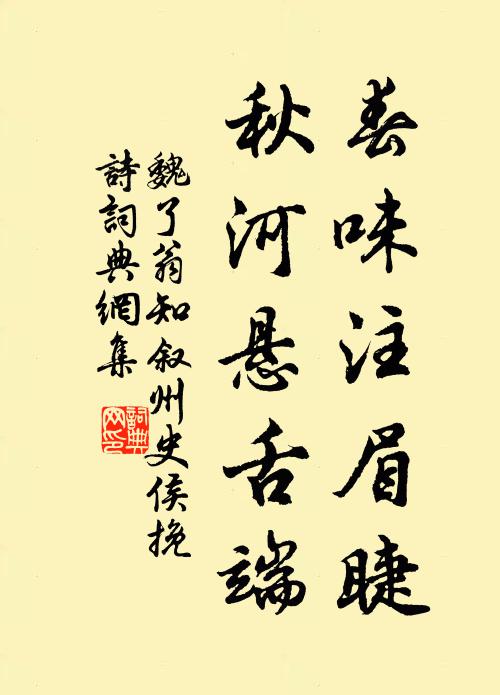 春味注眉睫
秋河悬舌端
魏了翁知叙州史侯挽
詩詞典網集
詞典网印